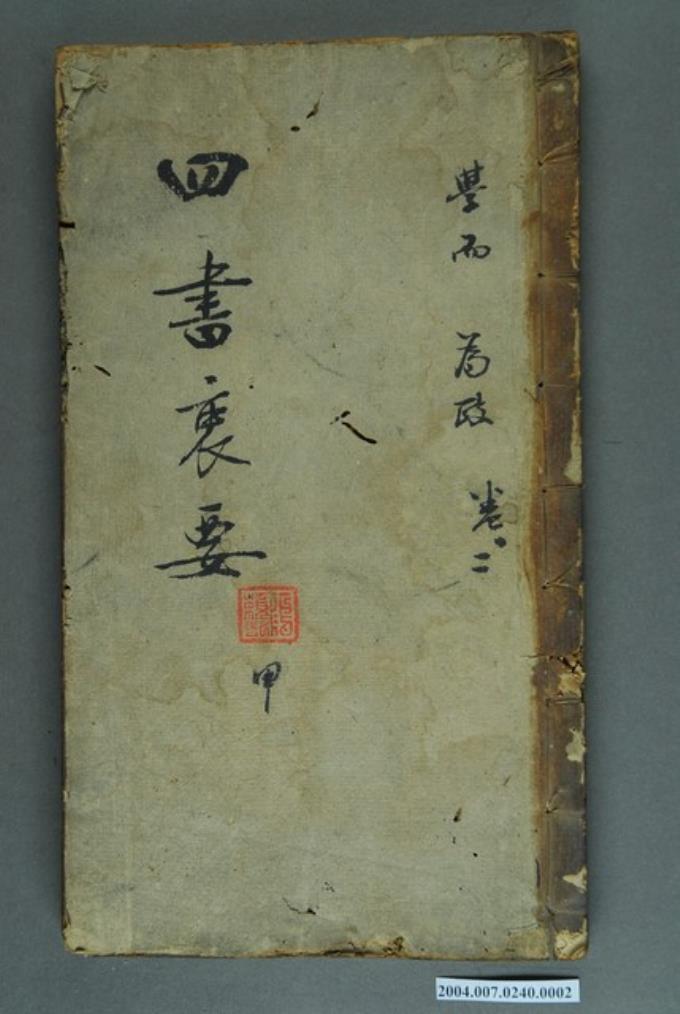 學而 為政 卷一二
四書衷要
甲
2004.007.0240.0002